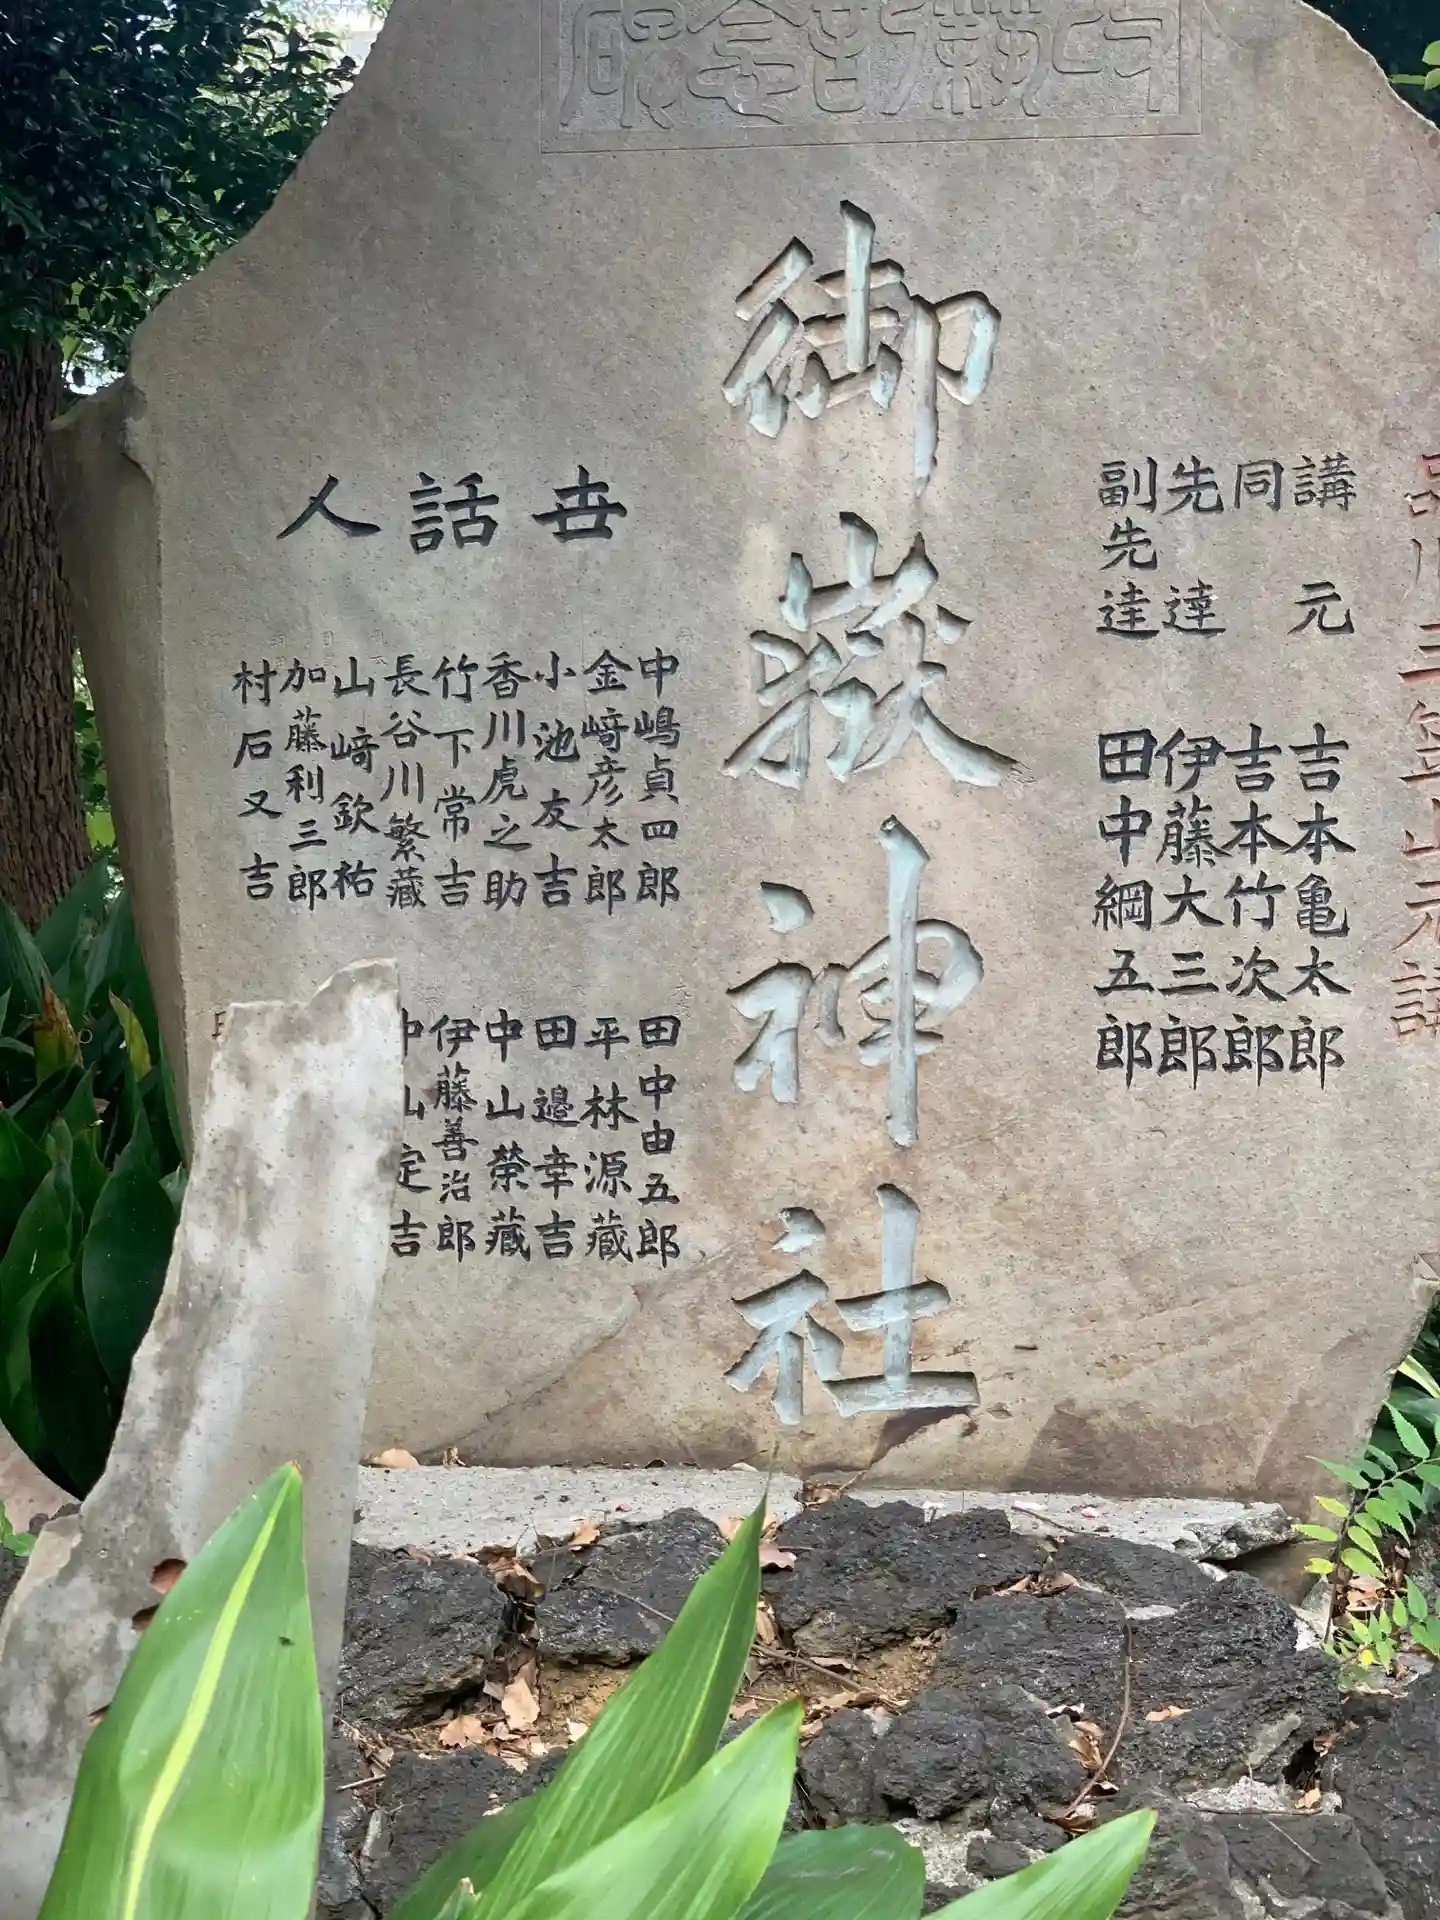 記念碑
品川三笠山元講
講元 吉本亀太郎
同 吉本竹次郎
先達 伊藤大三郎
副先達 田中綱五郎
御嶽神社
世話人
中嶋貞四郎
金﨑彦太郎
小池友吉
香川虎之助
竹下常吉
長谷川繁藏
山﨑欽祐
加藤利三郎
村石又吉
田中由五郎
平林源藏
田邉幸吉
中山榮藏
伊藤善治郎
中山定吉